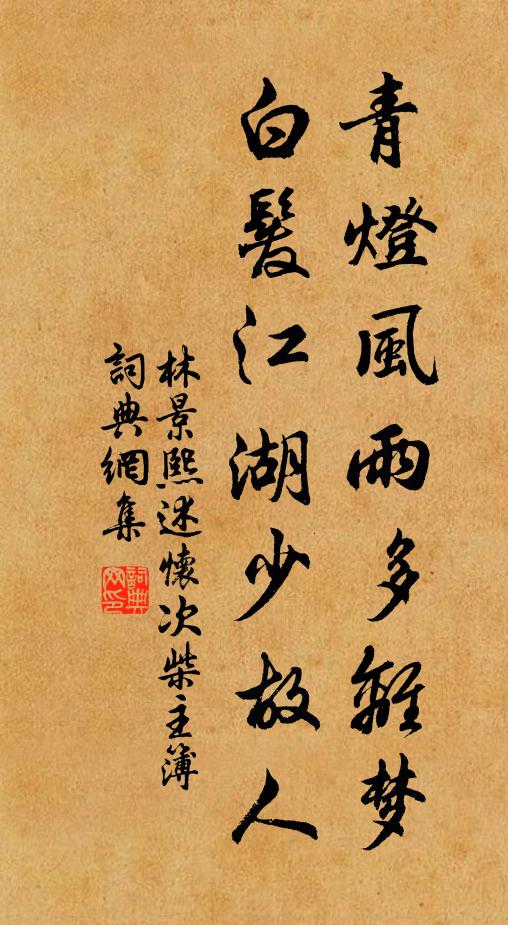 青燈風雨多離梦
白髮江湖少故人
林景熙述懷次柴主簿
詞典網集
詞典网印